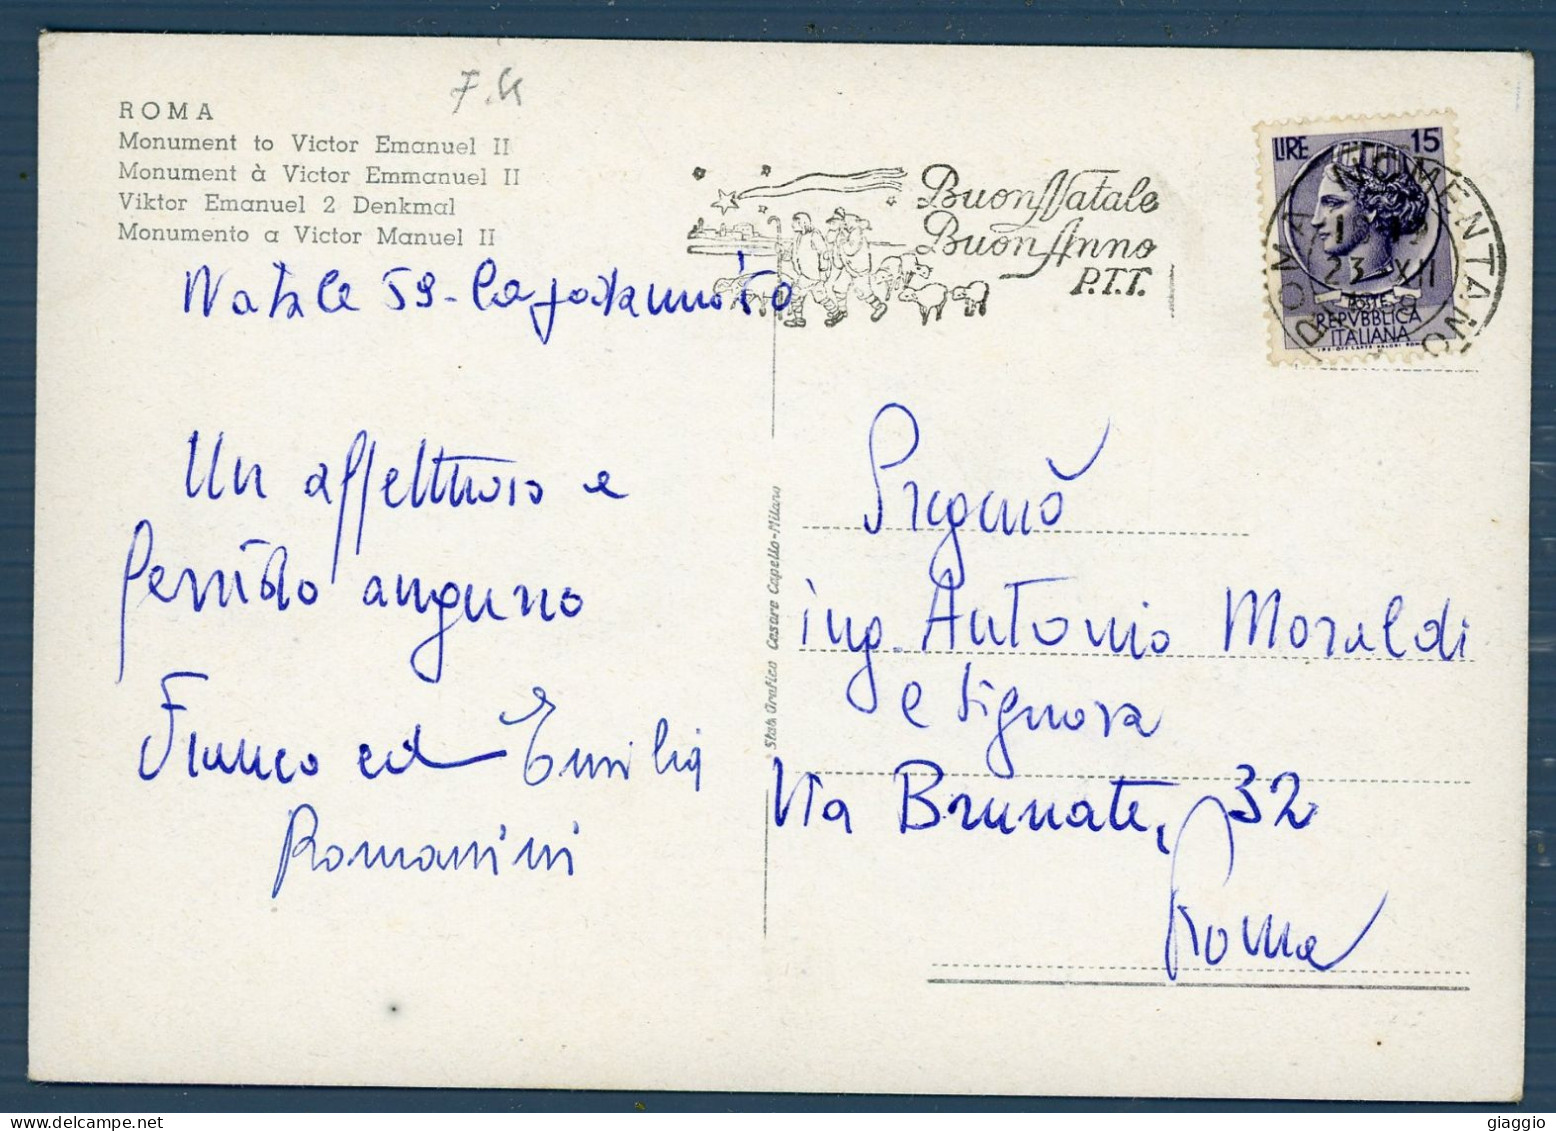 ROMA
Monument to Victor Emanuel II
Monument à Victor Emmanuel II
Viktor Emanuel 2 Denkmal
Monumento a Victor Manuel II
Natale 59 -
Un affettuoso e
fervido augurio
Franco ed Emilia
Romanini
Stab. Grafico Cesare Capello - Milano
Buon Natale
Buon Anno
P.T.T.
LIRE 15
POSTE
REPVBBLICA
ITALIANA
ROMA NOMENTANO
23 XII
ing. Antonio Moraldi
e Signora
Via Brunate, 32
Roma
giaggio